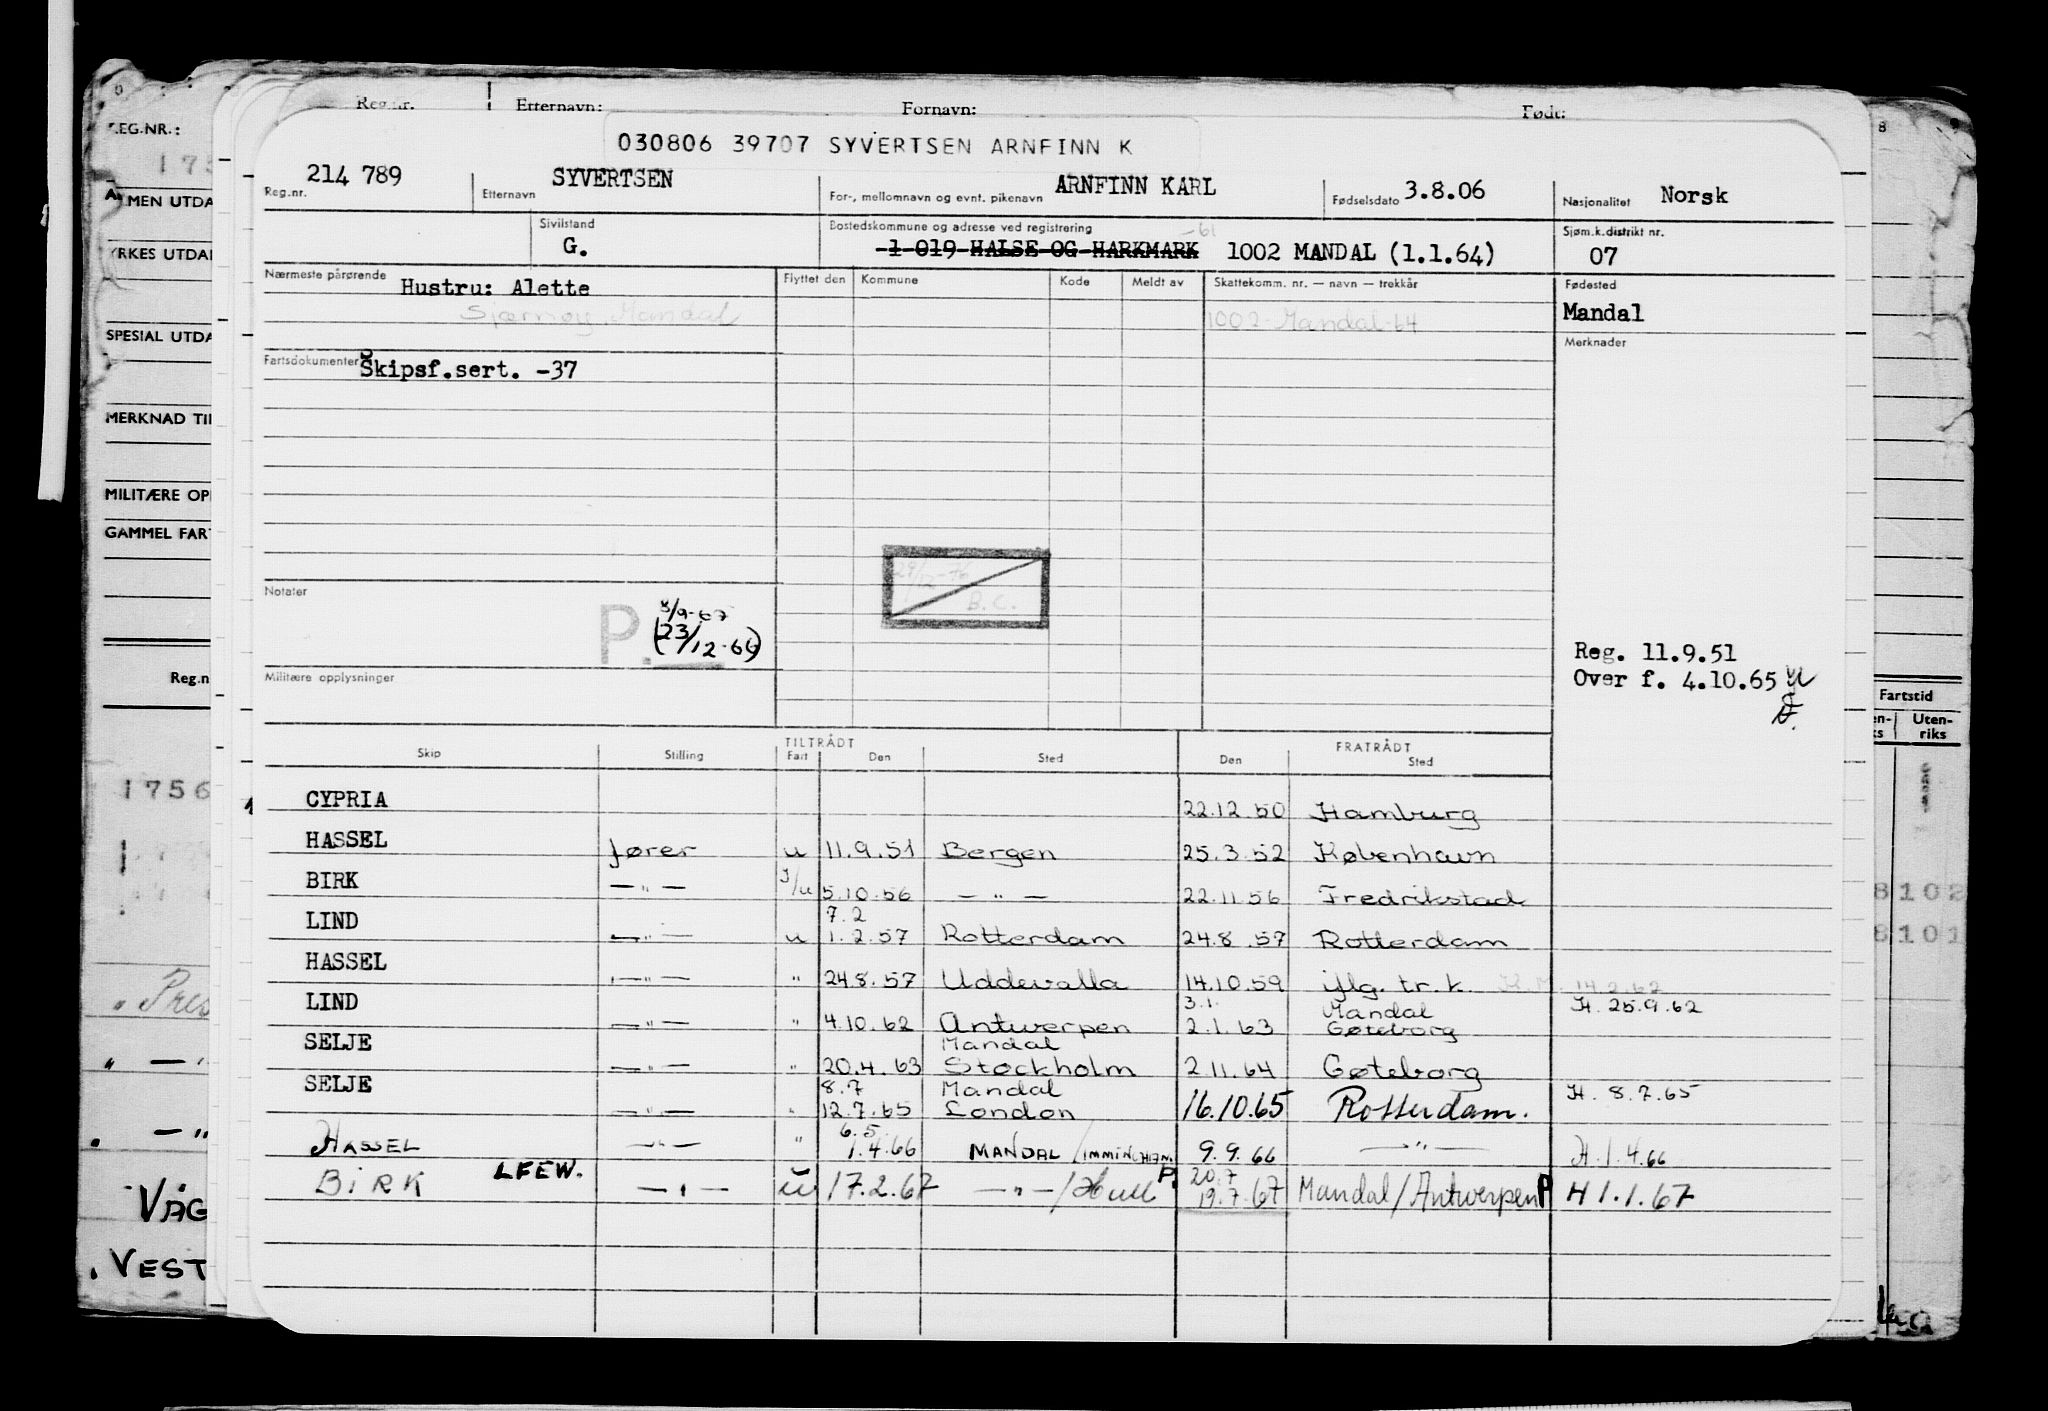 Reg.nr. Etternavn: Fornavn: Født:
030806 39707 SYVERTSEN ARNFINN K
REG.NR.:
214 789 SYVERTSEN ARNFINN KARL 3.8.06 Norsk
Reg.nr. Etternavn For-, mellomnavn og evnt. pikenavn Fødselsdato Nasjonalitet
Sivilstand Bostedskommune og adresse ved registrering -61 Sjøm.k.distrikt nr.
G. 1 019 HALSE OG HARKMARK 1002 MANDAL (1.1.64) 07
Nærmeste pårørende Flyttet den Kommune Kode Meldt av Skattekomm. nr. — navn — trekkår Fødested
Hustru: Alette
Sjærnøy, Mandal 1002-Mandal-64 Mandal
Merknader
Fartsdokumenter Skipsf.sert. -37
29/12-76
B.C.
Notater
P. 8/9-67
(23/12-66)
Reg. 11.9.51
Over f. 4.10.65
Militære opplysninger
TILTRÅDT FRATRÅDT
Skip Stilling Fart Den Sted Den Sted
CYPRIA 22.12.50 Hamburg
HASSEL fører u 11.9.51 Bergen 25.3.52 København
BIRK —"— I/u 5.10.56 —"— 22.11.56 Fredrikstad
7.2
LIND —"— u 1.2.57 Rotterdam 24.8.57 Rotterdam
HASSEL —"— " 24.8.57 Uddevalla 14.10.59 iflg. tr.k. K.M. 14.2.62
3.1. Mandal H. 25.9.62
LIND —"— " 4.10.62 Antwerpen 2.1.63 Gøteborg
Mandal
SELJE —"— " 20.4.63 Stockholm 2.11.64 Gøteborg
8.7 Mandal H. 8.7.65
SELJE —"— " 12.7.65 London 16.10.65 Rotterdam.
6.5.
HASSEL —"— " 1.4.66 MANDAL/IMMINGHAM. 9.9.66 —"— H.1.4.66
20.7
BIRK LFEW. —"— u 17.2.67 —"—/Hull P. 19.7.67 Mandal/Antwerpen P H 1.1.67
ALMEN UTDA
YRKES UTDA
SPESIAL UTDA
MERKNAD TIL
MILITÆRE OP
GAMMEL FAR
Reg.n
1756
" —"
" —"
VÅG
VEST
Fartstid
Uten-
riks
8102
8101